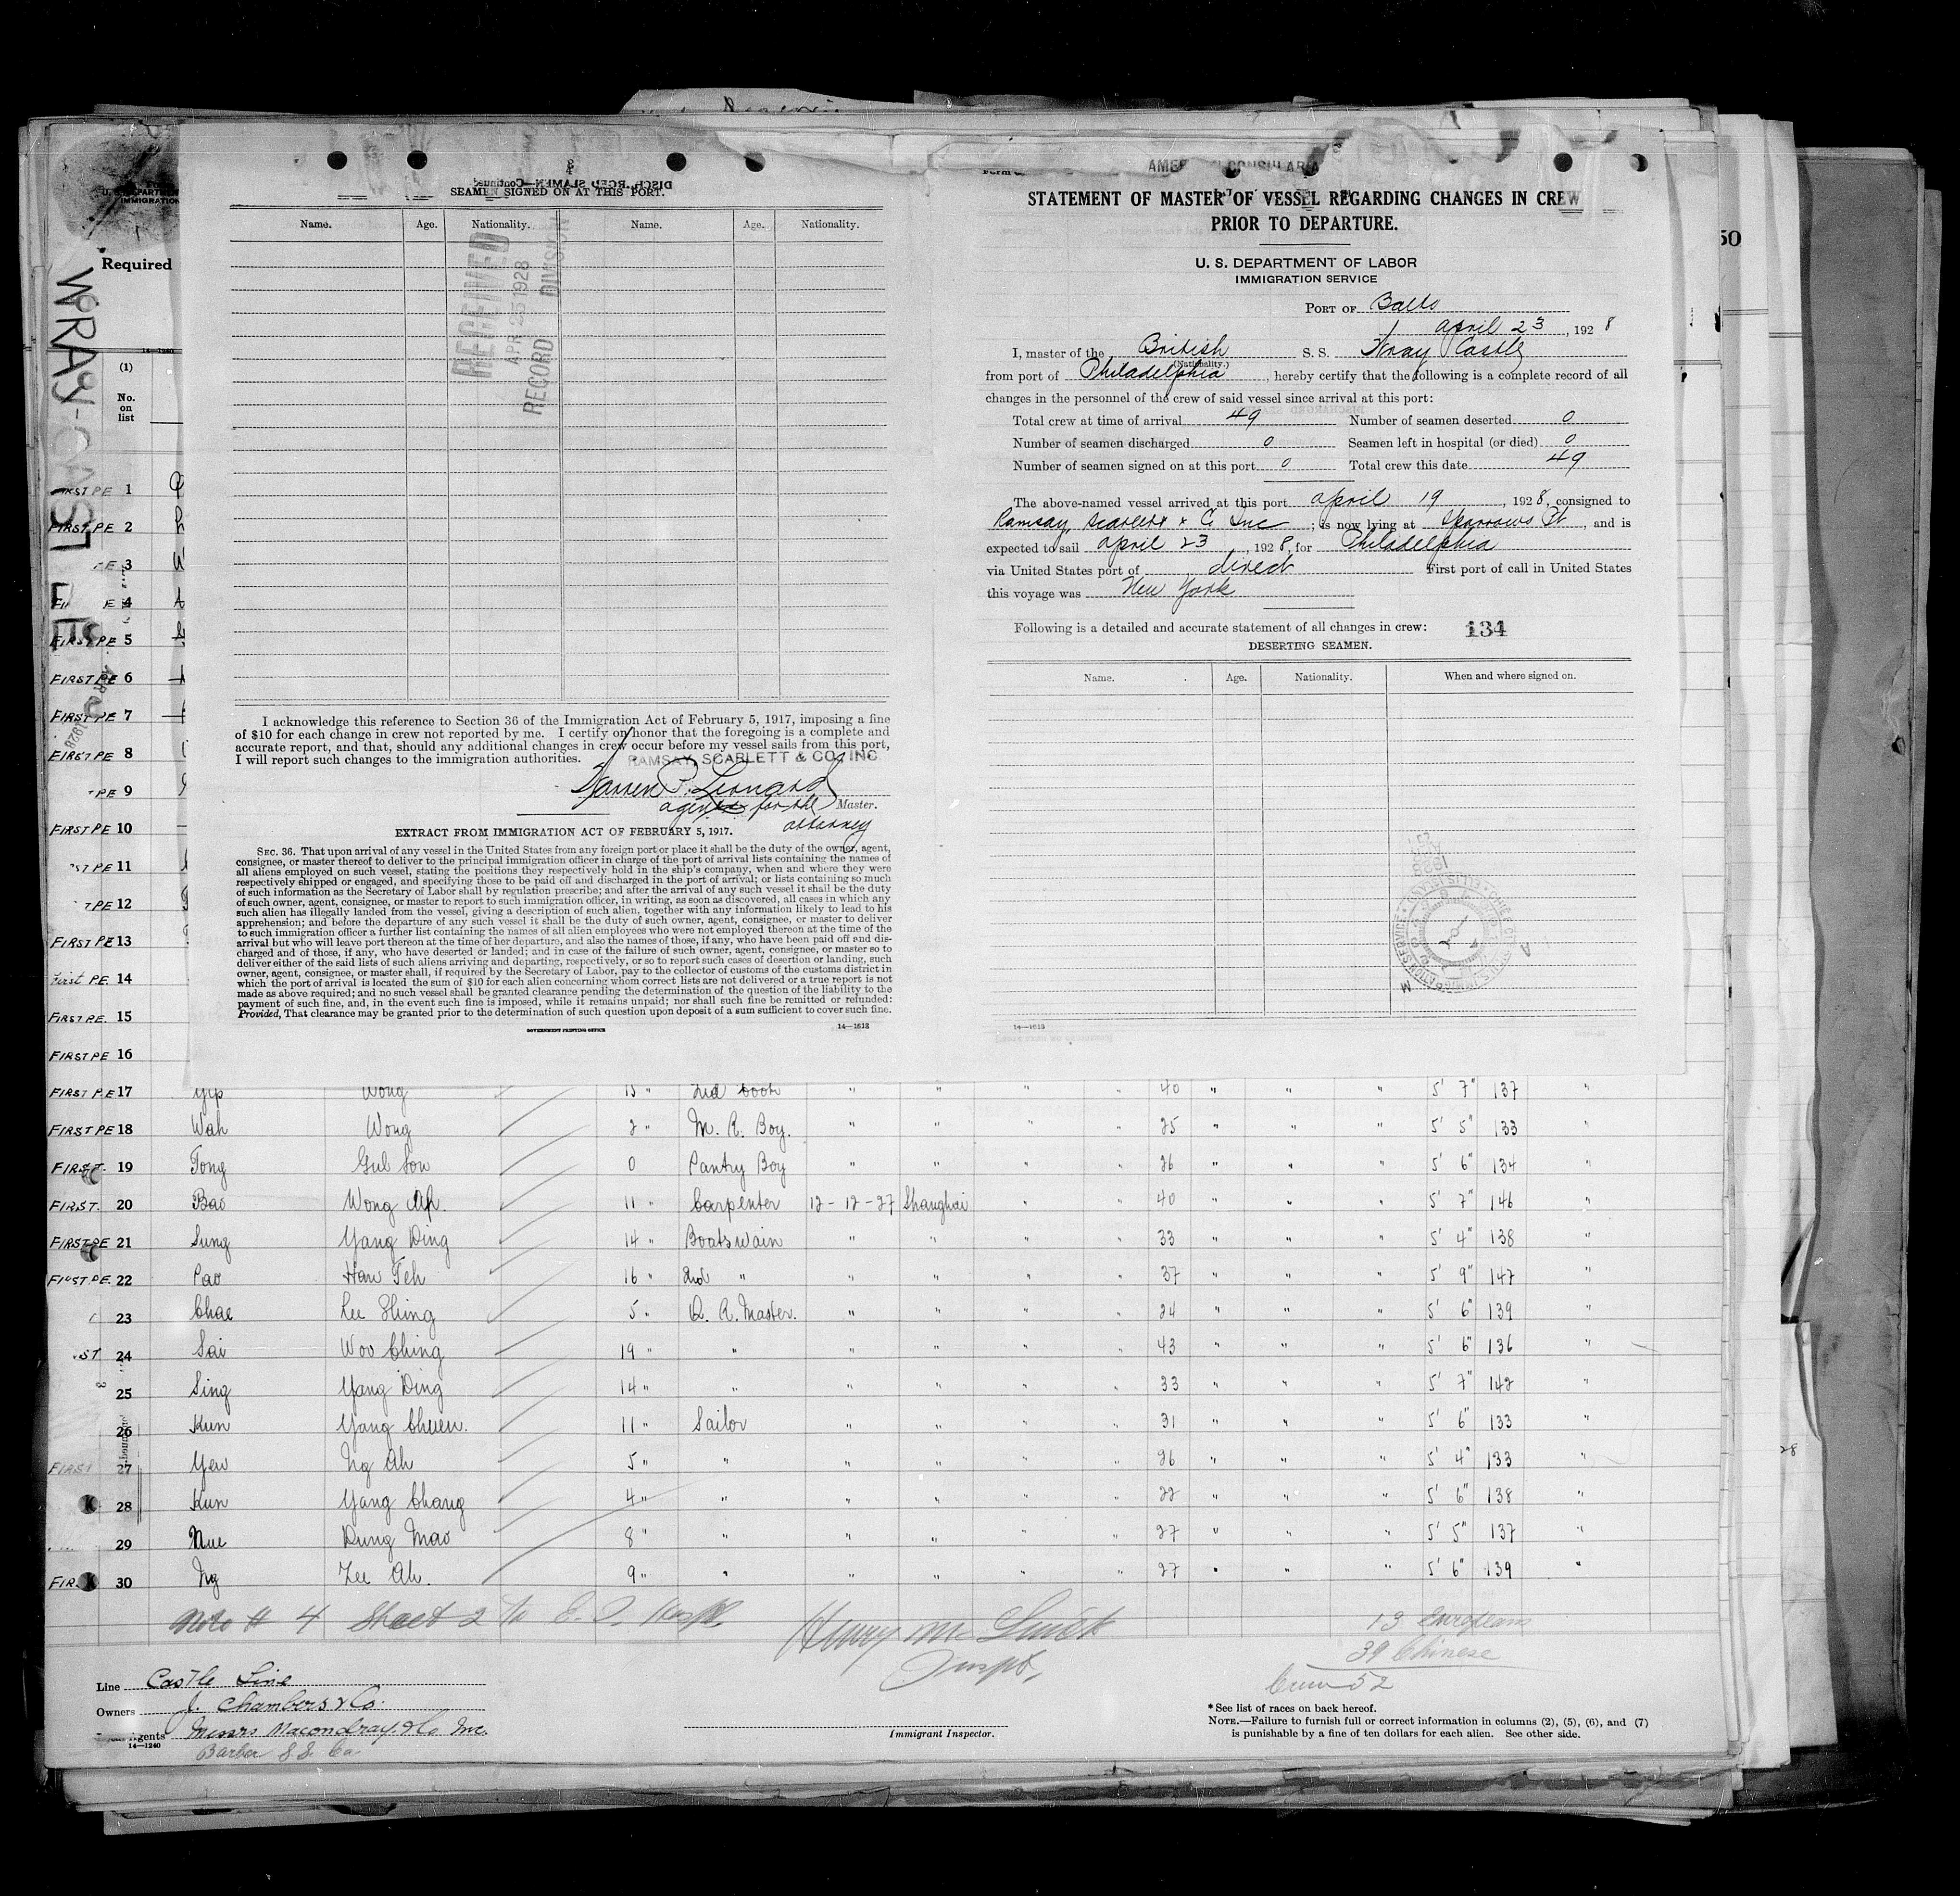 SEAMEN SIGNED ON AT THIS PORT.
Name. Age. Nationality. Name. Age. Nationality.
RECEIVED
APR 25 1928
RECORD DIVISION
I acknowledge this reference to Section 36 of the Immigration Act of February 5, 1917, imposing a fine
of $10 for each change in crew not reported by me. I certify on honor that the foregoing is a complete and
accurate report, and that, should any additional changes in crew occur before my vessel sails from this port,
I will report such changes to the immigration authorities.
RAMSAY, SCARLETT & CO., INC.
Warren P. Leonard
agent for the Master.
attorney
EXTRACT FROM IMMIGRATION ACT OF FEBRUARY 5, 1917.
SEC. 36. That upon arrival of any vessel in the United States from any foreign port or place it shall be the duty of the owner, agent,
consignee, or master thereof to deliver to the principal immigration officer in charge of the port of arrival lists containing the names of
all aliens employed on such vessel, stating the positions they respectively hold in the ship's company, when and where they were
respectively shipped or engaged, and specifying those to be paid off and discharged in the port of arrival; or lists containing so much
of such information as the Secretary of Labor shall by regulation prescribe; and after the arrival of any such vessel it shall be the duty
of such owner, agent, consignee, or master to report to such immigration officer, in writing, as soon as discovered, all cases in which any
such alien has illegally landed from the vessel, giving a description of such alien, together with any information likely to lead to his
apprehension; and before the departure of any such vessel it shall be the duty of such owner, agent, consignee, or master to deliver
to such immigration officer a further list containing the names of all alien employees who were not employed thereon at the time of the
arrival but who will leave port thereon at the time of her departure, and also the names of those, if any, who have been paid off and dis-
charged and of those, if any, who have deserted or landed; and in case of the failure of such owner, agent, consignee, or master so to
deliver either of the said lists of such aliens arriving and departing, respectively, or so to report such cases of desertion or landing, such
owner, agent, consignee, or master shall, if required by the Secretary of Labor, pay to the collector of customs of the customs district in
which the port of arrival is located the sum of $10 for each alien concerning whom correct lists are not delivered or a true report is not
made as above required; and no such vessel shall be granted clearance pending the determination of the question of the liability to the
payment of such fine, and, in the event such fine is imposed, while it remains unpaid; nor shall such fine be remitted or refunded:
Provided, That clearance may be granted prior to the determination of such question upon deposit of a sum sufficient to cover such fine.
GOVERNMENT PRINTING OFFICE 14—1513
STATEMENT OF MASTER OF VESSEL REGARDING CHANGES IN CREW
PRIOR TO DEPARTURE.
U. S. DEPARTMENT OF LABOR
IMMIGRATION SERVICE
PORT OF Balto
April 23, 1928
I, master of the British S. S. Wray Castle
(Nationality.)
from port of Philadelphia, hereby certify that the following is a complete record of all
changes in the personnel of the crew of said vessel since arrival at this port:
Total crew at time of arrival 49 Number of seamen deserted 0
Number of seamen discharged 0 Seamen left in hospital (or died) 0
Number of seamen signed on at this port 0 Total crew this date 49
The above-named vessel arrived at this port April 19, 1928, consigned to
Ramsay Scarlett & Co Inc; is now lying at Sparrows Pt, and is
expected to sail April 23, 1928, for Philadelphia
via United States port of direct First port of call in United States
this voyage was New York
Following is a detailed and accurate statement of all changes in crew: 134
DESERTING SEAMEN.
Name. Age. Nationality. When and where signed on.
14—1513
WRAY-CASTLE
Required
(1)
No.
on
list
FIRST PE 1
FIRST PE 2
PE 3
PE 4
FIRST PE 5
FIRST PE 6
FIRST PE 7
FIRST PE 8
PE 9
FIRST PE 10
11
PE 12
FIRST PE 13
First PE. 14
FIRST PE. 15
FIRST PE 16
FIRST PE 17 Yip Wong 15 " 2nd Cook " " " " 40 " " " 5' 7" 137 "
FIRST PE 18 Wah Wong 2 " M. R. Boy. " " " " 25 " " " 5' 5" 133 "
FIRST. 19 Tong Gul Son 0 Pantry Boy " " " " 26 " " " 5' 6" 134 "
FIRST. 20 Bao Wong Ah. 11 " Carpenter 12-12-27 Shanghai " " 40 " " " 5' 7" 146 "
FIRST PE 21 Sung Yang Ding 14 " Boatswain " " " " 33 " " " 5' 4" 138 "
FIRST PE. 22 Pao Haw Teh 16 " 2nd " " " " " 37 " " " 5' 9" 147 "
23 Chae Lee Shing 5 " Q. R. Master. " " " " 24 " " " 5' 6" 139 "
24 Sai Woo Ching 19 " " " " " " 43 " " " 5' 6" 136 "
25 Sing Yang Ding 14 " " " " " " 33 " " " 5' 7" 142 "
26 Kun Yang Chuen. 11 " Sailor " " " " 31 " " " 5' 6" 133 "
FIRST 27 Yew Ng Ah 5 " " " " " " 26 " " " 5' 4" 133 "
28 Kun Yang Chang 4 " " " " " " 22 " " " 5' 6" 138 "
29 Nue Dung Mao 8 " " " " " " 27 " " " 5' 5" 137 "
30 Ng Zee Ah. 9 " " " " " " 27 " " " 5' 6" 139 "
Note # 4 Sheet 2 to E. I. Hosp.
Inspt.
13 Europeans
39 Chinese
Crew 52
Line Castle Line
Owners J. Chambers & Co.
Agents Messrs Macondray & Co Inc.
14—1240
Barber S.S. Co
Immigrant Inspector.
* See list of races on back hereof.
NOTE.—Failure to furnish full or correct information in columns (2), (5), (6), and (7)
is punishable by a fine of ten dollars for each alien. See other side.
50